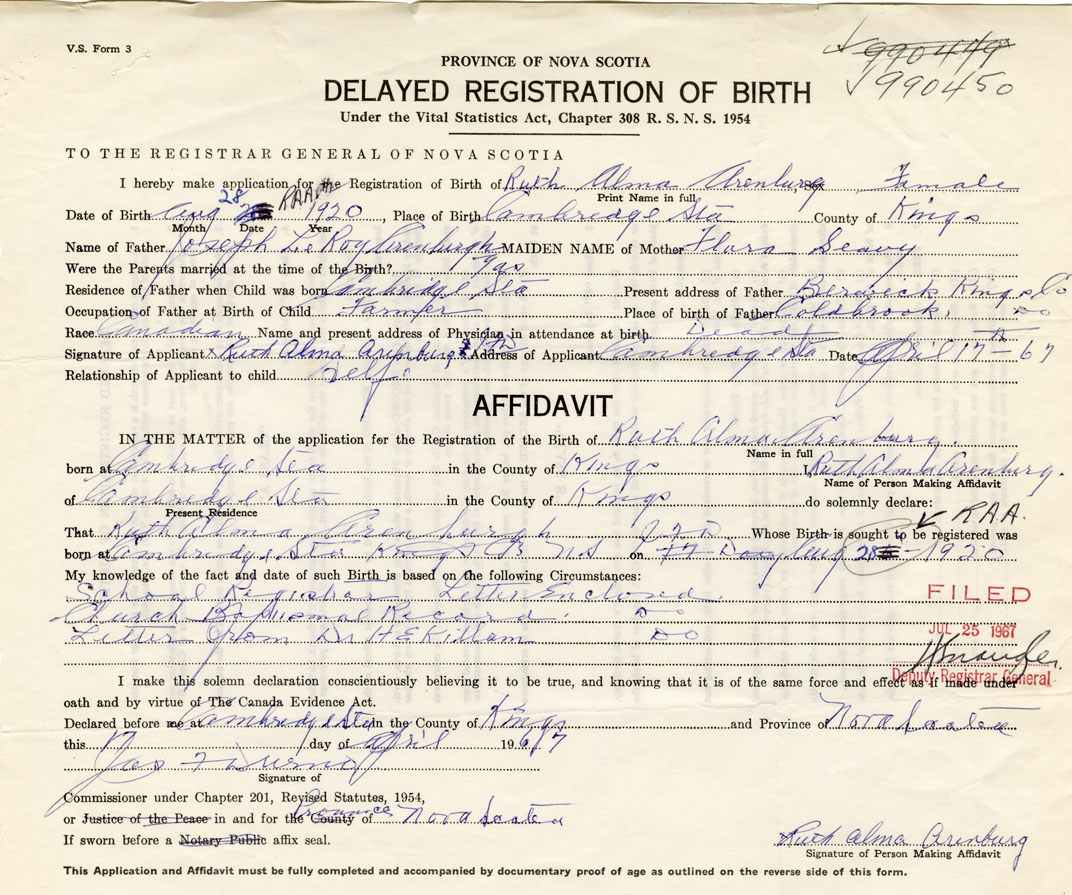 V.S. Form 3
990449
990450
PROVINCE OF NOVA SCOTIA
DELAYED REGISTRATION OF BIRTH
Under the Vital Statistics Act, Chapter 308 R. S. N. S. 1954
TO THE REGISTRAR GENERAL OF NOVA SCOTIA
I hereby make application for the Registration of Birth of Ruth Alma Arenburg Sex Famale
Print Name in full
28 RAA
Date of Birth Aug 1920, Place of Birth Cambridge Sta County of Kings
Month Date Year
Name of Father Joseph LeRoy Arenburgh MAIDEN NAME of Mother Flora Seavy
Were the Parents married at the time of the Birth? Yas
Residence of Father when Child was born Cambridge Sta Present address of Father Berwick Kings Co
Occupation of Father at Birth of Child Farmer Place of birth of Father Coldbrook, Do
Race Canadian Name and present address of Physician in attendance at birth Dead
Signature of Applicant Ruth Alma Arenburg Address of Applicant Cambridge Sta Date April 17th - 67
Relationship of Applicant to child Self
AFFIDAVIT
IN THE MATTER of the application fer the Registration of the Birth of Ruth Alma Arenburg.
Name in full
born at Cambridge Sta in the County of Kings I, Ruth Alma Arenburg.
Name of Person Making Affidavit
of Cambridge Sta in the County of Kings do solemnly declare:
Present Residence
RAA.
That Ruth Alma Arenburgh Whose Birth is sought to be registered was
born at Cambridge Sta Kings Co NS on Day Aug 28 - 1920
My knowledge of the fact and date of such Birth is based on the following Circumstances:
School Registrar Letter Enclosed
Church Baptismal Record Do
Letter from Dr H E Killam Do
FILED
JUL 25 1967
Deputy Registrar General
I make this solemn declaration conscientiously believing it to be true, and knowing that it is of the same force and effect as if made under
oath and by virtue of The Canada Evidence Act.
Declared before me at Cambridge Sta in the County of Kings and Province of Nova Scotia
this day of April 1967
Signature of
Commissioner under Chapter 201, Revised Statutes, 1954,
or Justice of the Peace in and for the County Province of Nova Scotia
If sworn before a Notary Public affix seal.
Ruth Alma Arenburg
Signature of Person Making Affidavit
This Application and Affidavit must be fully completed and accompanied by documentary proof of age as outlined on the reverse side of this form.